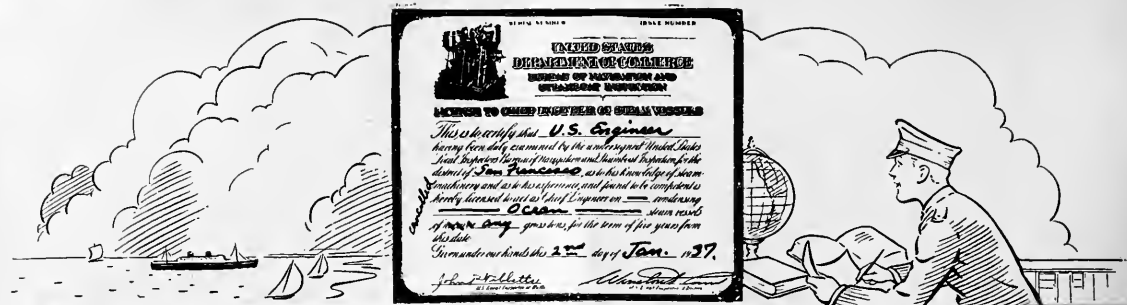 SERIAL NUMBER ISSUE NUMBER
UNITED STATES
DEPARTMENT OF COMMERCE
BUREAU OF NAVIGATION AND
STEAMBOAT INSPECTION
LICENSE TO CHIEF ENGINEER OF STEAM VESSELS
This is to certify that U.S. Engineer
having been duly examined by the undersigned United States
Local Inspectors Bureau of Navigation and Steamboat Inspection for the
district of San Francisco, as to his knowledge of steam
machinery and as to his experience, and found to be competent is
hereby licensed to act as Chief Engineer on — condensing
Ocean steam vessels
of any gross tons, for the term of five years from
this date
Given under our hands this 2nd day of Jan. 1937.
cancelled